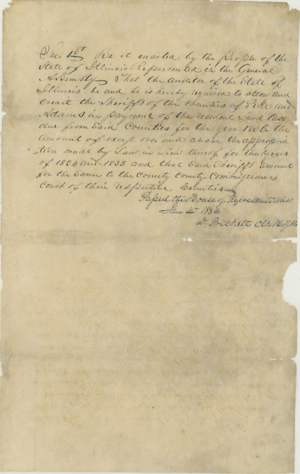 Sec 1st Be it enacted by the people of the
State of Illinois Represented in the General
Assembly That the auditor of the State of
Illinois be and he is hereby required to allow and
credit the Sheriffs of the Counties of Pike and
Adams in payment of the resident land tax
due from Said Counties for the year
amount of over and above the appropria
tion made by Law in Lieu thereof for the years
of 1834 and 1835 and that Said Sheriffs account
for the Same to the County County Commissioners
Court of their respective Counties
Passed the House of Representatives
Jany 183
D Prickett Clk H R